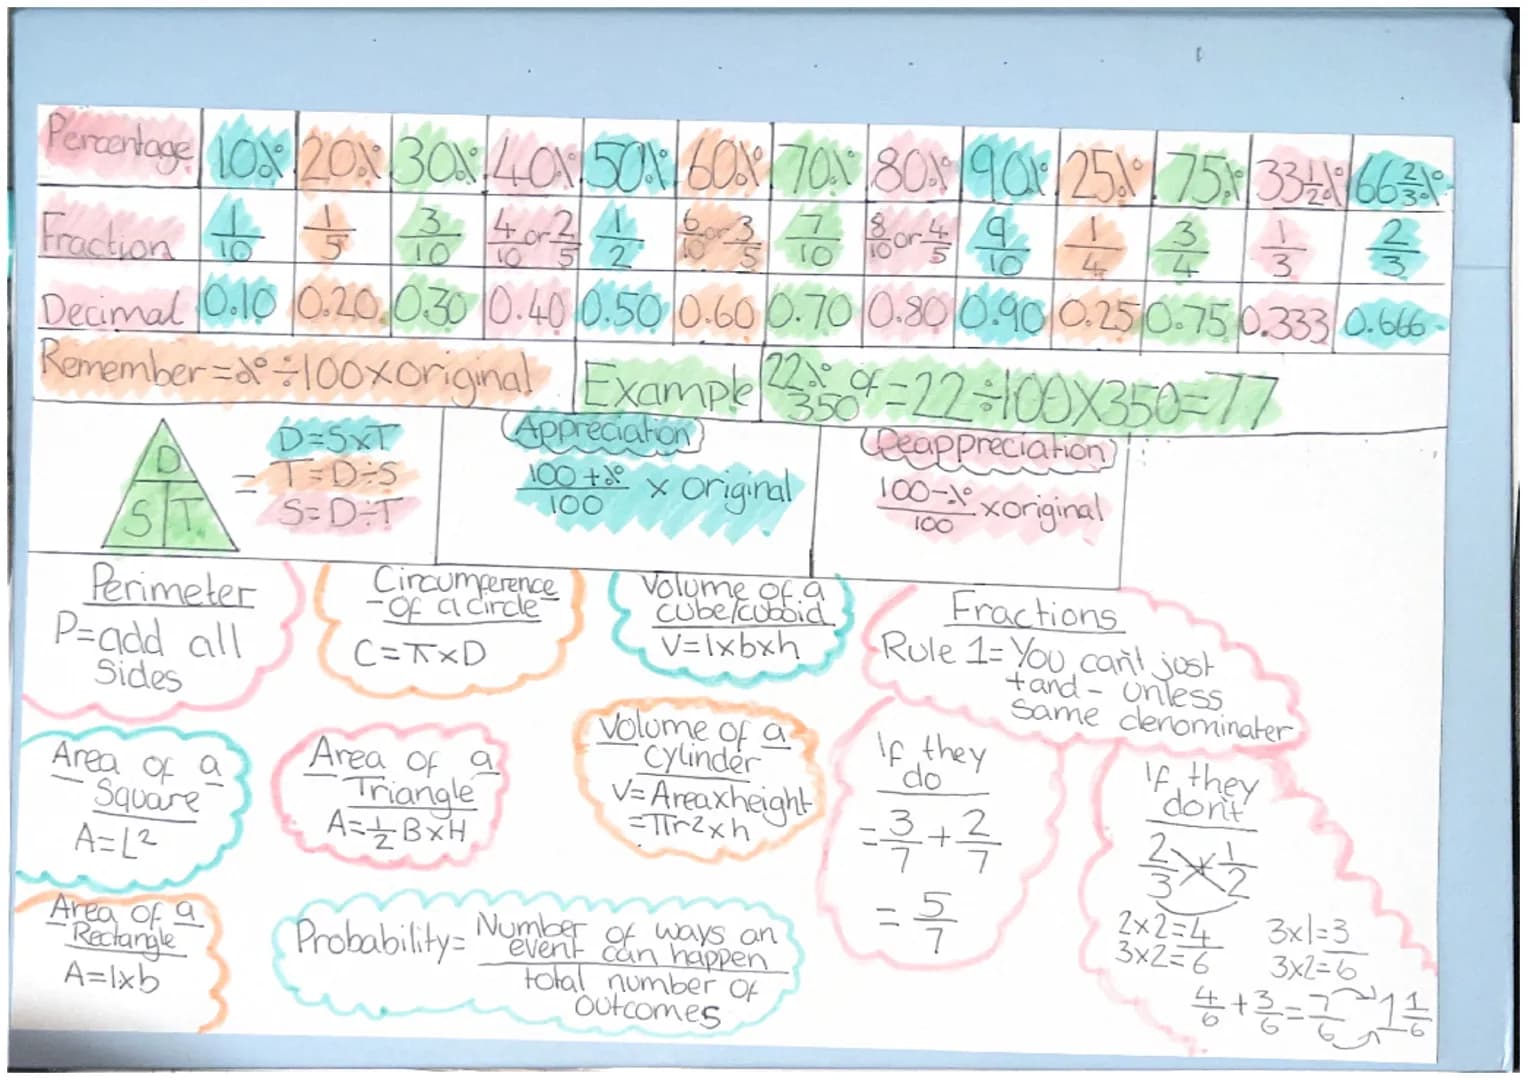 Percentage 10% 20% 30% 40% 50% 60% 70% 80% 90% 25% 75% 33 1/2% 66 2/3%
Fraction 1/10 1/5 3/10 4/10 or 2/5 1/2 6/10 or 3/5 7/10 8/10 or 4/5 9/10 1/4 3/4 1/3 2/3
Decimal 0.10 0.20 0.30 0.40 0.50 0.60 0.70 0.80 0.90 0.25 0.75 0.333 0.666
Remember = % ÷ 100 x original Example 22% of 350 = 22 ÷ 100 x 350 = 77
D
S T
= D = S x T
T = D ÷ S
S = D ÷ T
Appreciation
100 + % / 100 x original
Deappreciation
100 - % / 100 x original
Perimeter
P = add all
sides
Circumference
of a circle
C = π x D
Volume of a
cube/cuboid
V = l x b x h
Fractions
Rule 1 = You can't just
+ and - unless
same denominater
Area of a
Square
A = L²
Area of a
Triangle
A = 1/2 B x H
Volume of a
Cylinder
V = Area x height
= πr² x h
If they
do
= 3/7 + 2/7
= 5/7
If they
don't
2/3 + 1/2
2 x 2 = 4 3 x 1 = 3
3 x 2 = 6 3 x 2 = 6
4/6 + 3/6 = 7/6 1 1/6
Area of a
Rectangle
A = l x b
Probability = Number of ways an
event can happen
total number of
outcomes